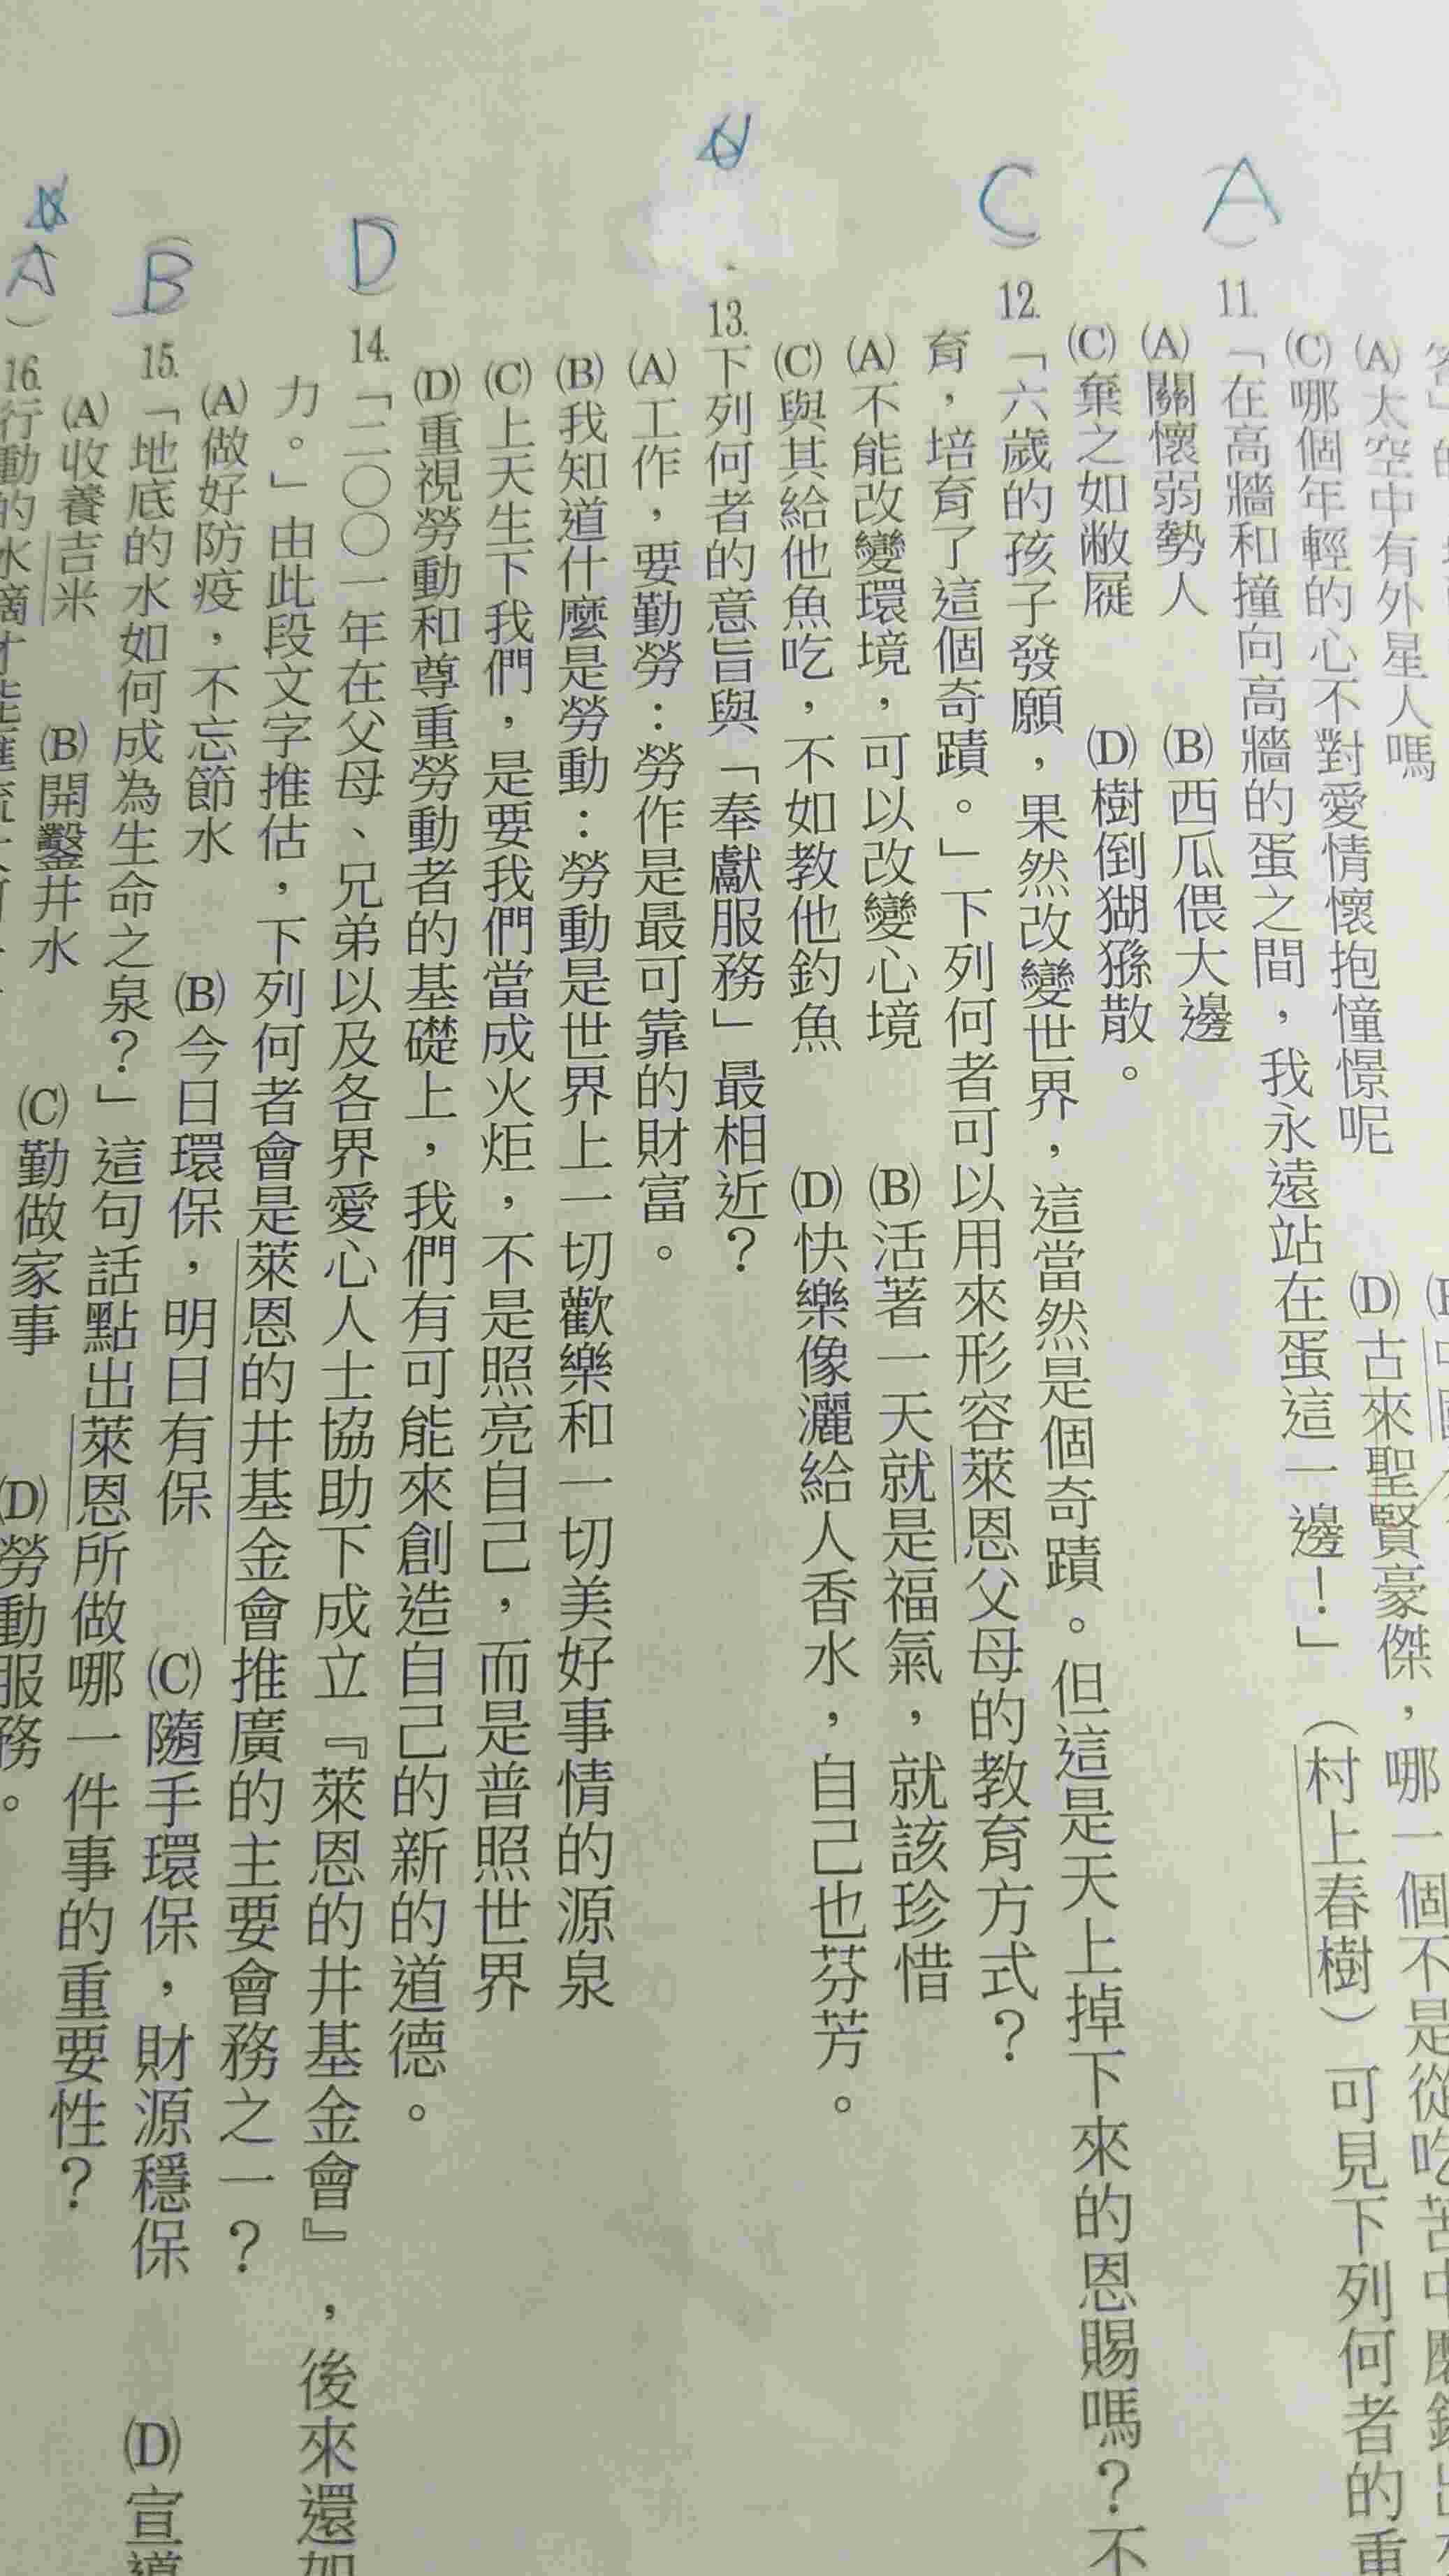 (A)太空中有外星人嗎
(C)哪個年輕的心不對愛情懷抱憧憬呢 (D)古來聖賢豪傑，哪一個不是從吃苦中磨
A 11.「在高牆和撞向高牆的蛋之間，我永遠站在蛋這一邊！」（村上春樹）可見下列何者的重
(A)關懷弱勢人 (B)西瓜偎大邊
(C)棄之如敝屣 (D)樹倒猢猻散。
C 12.「六歲的孩子發願，果然改變世界，這當然是個奇蹟。但這是天上掉下來的恩賜嗎？不
育，培育了這個奇蹟。」下列何者可以用來形容萊恩父母的教育方式？
(A)不能改變環境，可以改變心境 (B)活著一天就是福氣，就該珍惜
(C)與其給他魚吃，不如教他釣魚 (D)快樂像灑給人香水，自己也芬芳。
13.下列何者的意旨與「奉獻服務」最相近？
(A)工作，要勤勞：勞作是最可靠的財富。
(B)我知道什麼是勞動：勞動是世界上一切歡樂和一切美好事情的源泉
(C)上天生下我們，是要我們當成火炬，不是照亮自己，而是普照世界
(D)重視勞動和尊重勞動者的基礎上，我們有可能來創造自己的新的道德。
D 14.「二〇〇一年在父母、兄弟以及各界愛心人士協助下成立『萊恩的井基金會』，後來還加
力。」由此段文字推估，下列何者會是萊恩的井基金會推廣的主要會務之一？
(A)做好防疫，不忘節水 (B)今日環保，明日有保 (C)隨手環保，財源穩保 (D)宣導
B 15.「地底的水如何成為生命之泉？」這句話點出萊恩所做哪一件事的重要性？
(A)收養吉米 (B)開鑿井水 (C)勤做家事 (D)勞動服務。
A 16.行動的水滴才能匯流